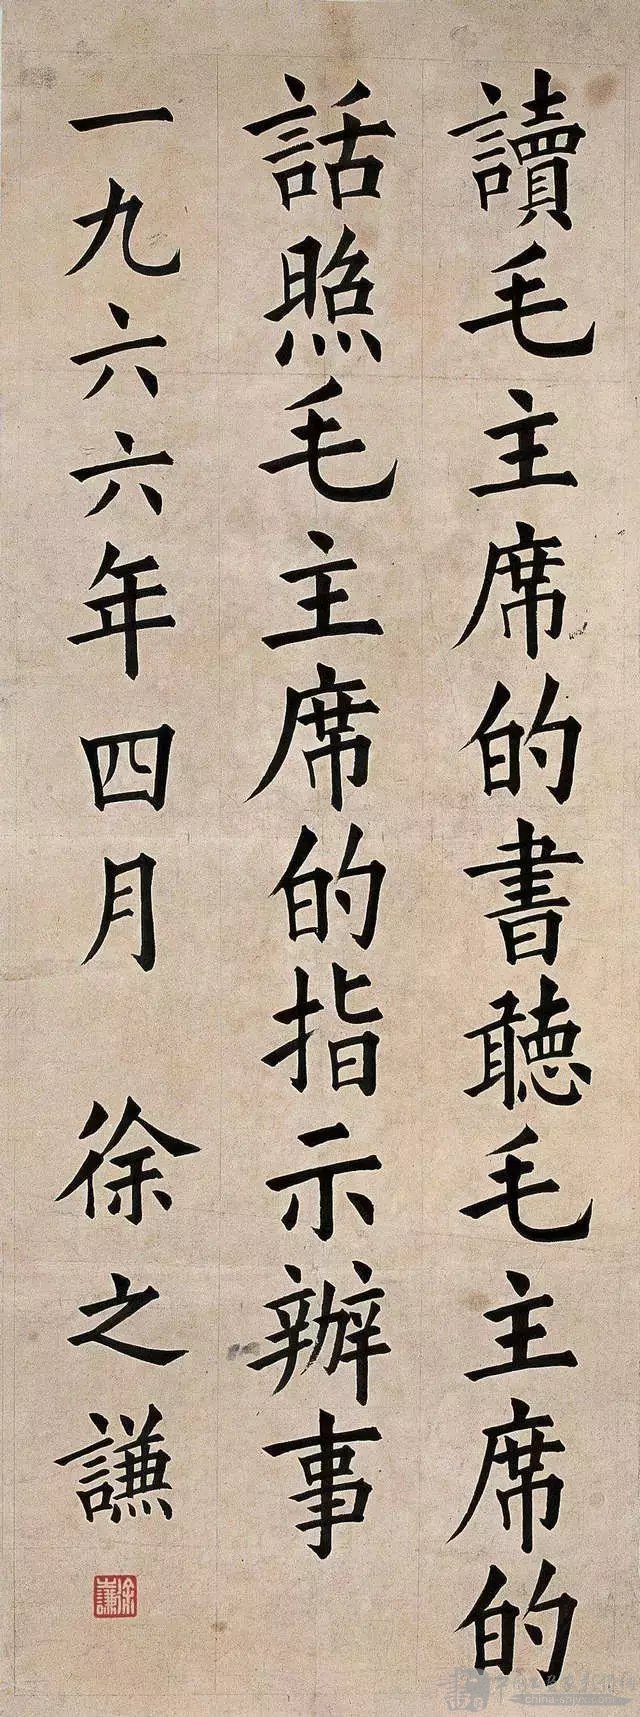 讀毛主席的書聽毛主席的
話照毛主席的指示辦事
一九六六年四月 徐之謙
徐之謙
china-shjyx.com